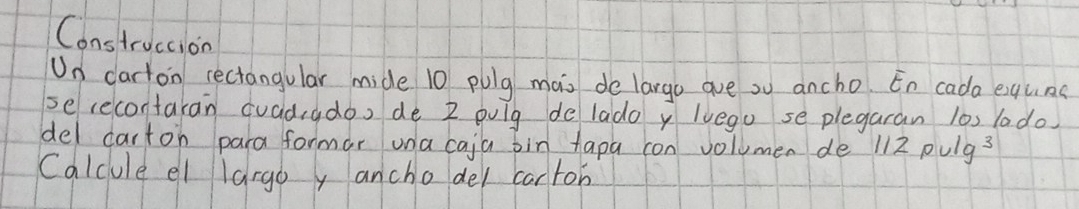 Construcción
Un cartón rectangular mide 10 pulg mas de largo que su ancho. En cada esquina
se recortaran cuadrados de 2 pulg de lado y luego se plegaran los lados
del carton para formar una caja sin tapa con volumen de 112 pulg³
Calcule el largo y ancho del carton